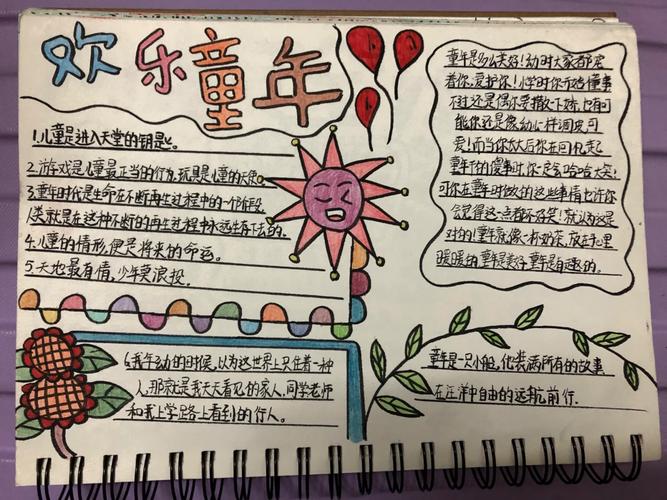 欢乐童年
1.儿童是进入天堂的钥匙。
2.游戏是儿童最正当的行为,玩具是儿童的天使。
3.童年时代是生命在不断再生过程中的一个阶段,
人类就是在这种不断的再生过程中永远生存下去的。
4.儿童的情形,便是将来的命运。
5.天地最有情,少年莫浪投。
童年是多么美好!幼时大家都宠
着你,爱护你!小学时你开始懂事
不过还是偶尔要撒下娇,也有可
能你还是像幼儿一样调皮可
爱!而当你长大后你在回忆起
童年干的傻事时你一定会哈哈大笑!
可你在童年时做的这些事情也许你
会觉得这一点都不好笑!就认为这是
对的!童年就像一杯奶茶,放在手心里
暖暖的,童年是美好童年是有趣的。
6.我年幼的时候,以为这世界上只住着一种
人,那就是我天天看见的家人、同学老师
和我上学路上看到的行人。
童年是一只小船,他载满所有的故事
在汪洋中自由的远航前行.